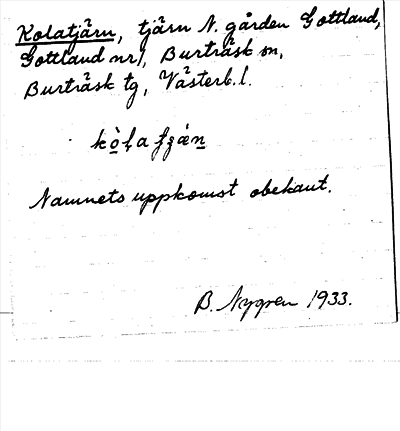 Kolatjärn, tjärn N. gården Gottland,
Gottland nr 1, Burträsk sn,
Burträsk tg, Västerb. l.
Namnets uppkomst obekant.
B. Nygren 1933.